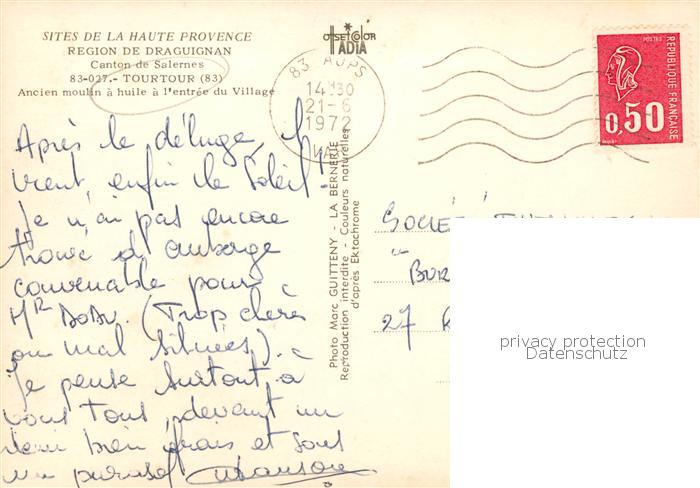 SITES DE LA HAUTE PROVENCE
REGION DE DRAGUIGNAN
Canton de Salernes
83-027.- TOURTOUR (83)
Ancien moulin à huile à l'entrée du Village
Après le déluge, le
vent, enfin le Soleil!
Je n'ai pas encore
trouvé d'auberge
convenable pour
Mr (Trop chères
ou mal situées).
Je pense surtout à
vous tous, devant un
demi bien frais et sous
un parasol
OFFSET COLOR
IADIA
83 AUPS
14H30
21-6
1972
VAR
Photo Marc GUITTENY - LA BERNERIE
Reproduction interdite - Couleurs naturelles
d'après Ektachrome
POSTES
REPUBLIQUE FRANÇAISE
0,50
SOCIÉTÉ
"BUR
27
privacy protection
Datenschutz